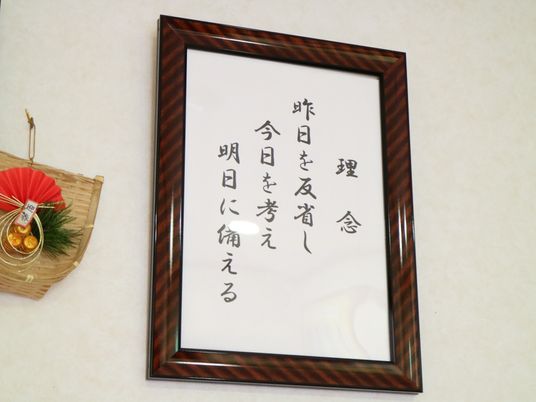 理念
昨日を反省し
今日を考え
明日に備える